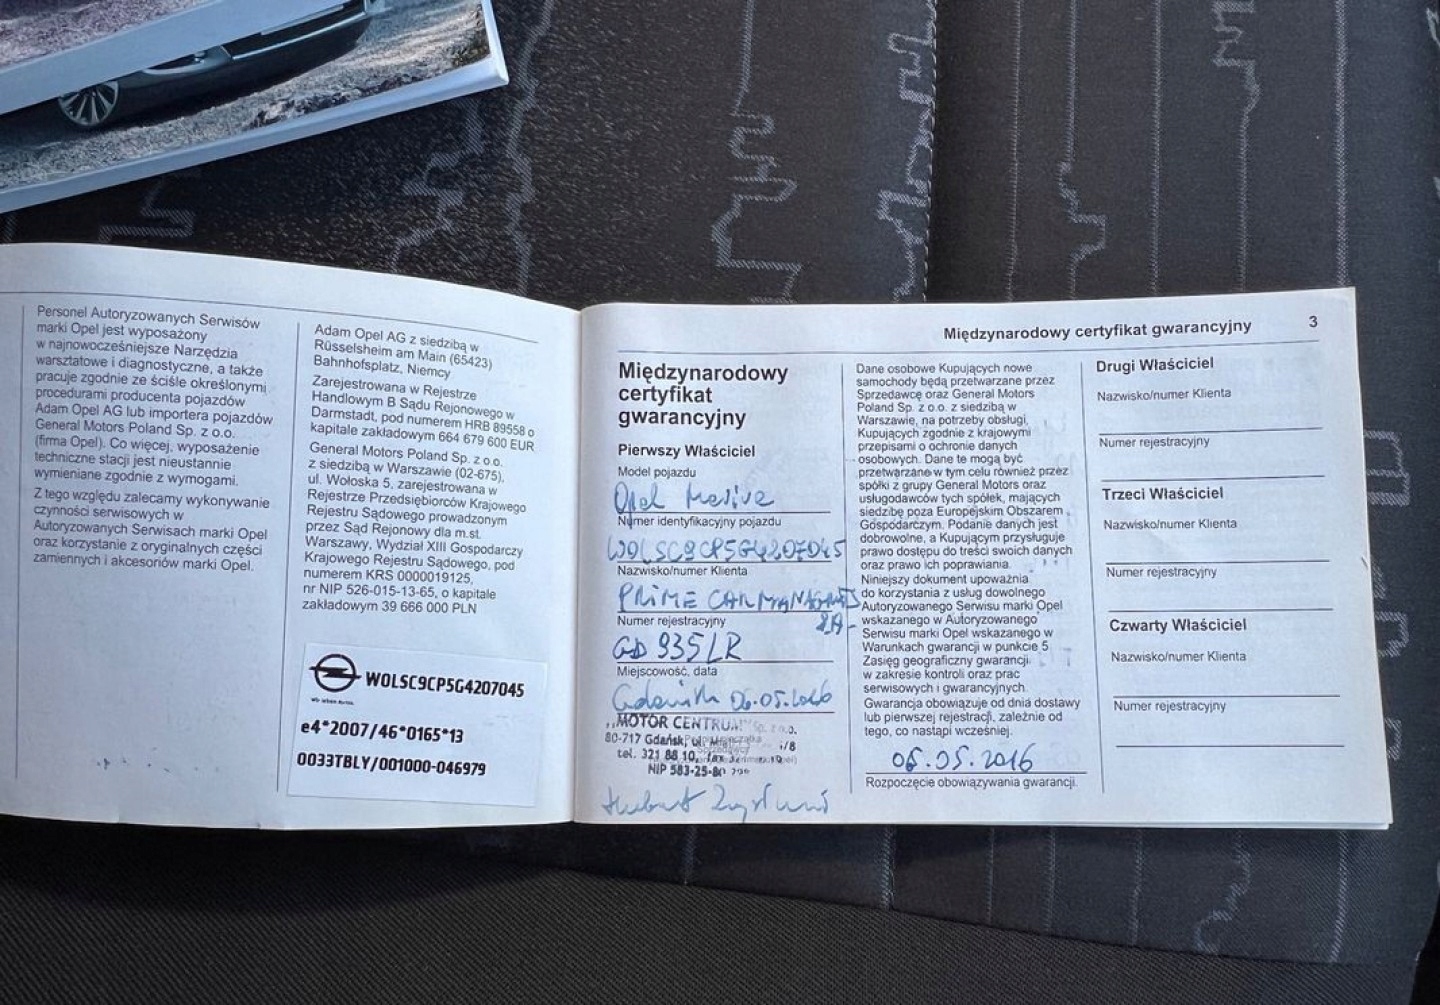 Personel Autoryzowanych Serwisów
marki Opel jest wyposażony
w najnowocześniejsze Narzędzia
warsztatowe i diagnostyczne, a także
pracuje zgodnie ze ściśle określonymi
procedurami producenta pojazdów
Adam Opel AG lub importera pojazdów
General Motors Poland Sp. z o.o.
(firma Opel). Co więcej, wyposażenie
techniczne stacji jest nieustannie
wymieniane zgodnie z wymogami.
Z tego względu zalecamy wykonywanie
czynności serwisowych w
Autoryzowanych Serwisach marki Opel
oraz korzystanie z oryginalnych części
zamiennych i akcesoriów marki Opel.
Adam Opel AG z siedzibą w
Rüsselsheim am Main (65423)
Bahnhofsplatz, Niemcy
Zarejestrowana w Rejestrze
Handlowym B Sądu Rejonowego w
Darmstadt, pod numerem HRB 89558 o
kapitale zakładowym 664 679 600 EUR
General Motors Poland Sp. z o.o.
z siedzibą w Warszawie (02-675),
ul. Wołoska 5, zarejestrowana w
Rejestrze Przedsiębiorców Krajowego
Rejestru Sądowego prowadzonym
przez Sąd Rejonowy dla m.st.
Warszawy, Wydział XIII Gospodarczy
Krajowego Rejestru Sądowego, pod
numerem KRS 0000019125,
nr NIP 526-015-13-65, o kapitale
zakładowym 39 666 000 PLN
W0LSC9CP5G4207045
Wir leben Autos.
e4*2007/46*0165*13
0033TBLY/001000-046979
Międzynarodowy certyfikat gwarancyjny 3
Międzynarodowy
certyfikat
gwarancyjny
Pierwszy Właściciel
Model pojazdu
Opel Meriva
Numer identyfikacyjny pojazdu
W0LSC9CP5G4207045
Nazwisko/numer Klienta
PRIME CAR MANAGMENT
S.A.
Numer rejestracyjny
GD 935LR
Miejscowość, data
Gdańsk 06.05.2016
„MOTOR CENTRUM" Sp. z o.o.
80-717 Gdańsk, ul. /8
tel. 321 88 10,
NIP 583-25-80
Hubert
Dane osobowe Kupujących nowe
samochody będą przetwarzane przez
Sprzedawcę oraz General Motors
Poland Sp. z o.o. z siedzibą w
Warszawie, na potrzeby obsługi
Kupujących zgodnie z krajowymi
przepisami o ochronie danych
osobowych. Dane te mogą być
przetwarzane w tym celu również przez
spółki z grupy General Motors oraz
usługodawców tych spółek, mających
siedzibę poza Europejskim Obszarem
Gospodarczym. Podanie danych jest
dobrowolne, a Kupującym przysługuje
prawo dostępu do treści swoich danych
oraz prawo ich poprawiania.
Niniejszy dokument upoważnia
do korzystania z usług dowolnego
Autoryzowanego Serwisu marki Opel
wskazanego w Autoryzowanego
Serwisu marki Opel wskazanego w
Warunkach gwarancji w punkcie 5
Zasięg geograficzny gwarancji
w zakresie kontroli oraz prac
serwisowych i gwarancyjnych.
Gwarancja obowiązuje od dnia dostawy
lub pierwszej rejestracji, zależnie od
tego, co nastąpi wcześniej.
06.05.2016
Rozpoczęcie obowiązywania gwarancji.
Drugi Właściciel
Nazwisko/numer Klienta
Numer rejestracyjny
Trzeci Właściciel
Nazwisko/numer Klienta
Numer rejestracyjny
Czwarty Właściciel
Nazwisko/numer Klienta
Numer rejestracyjny